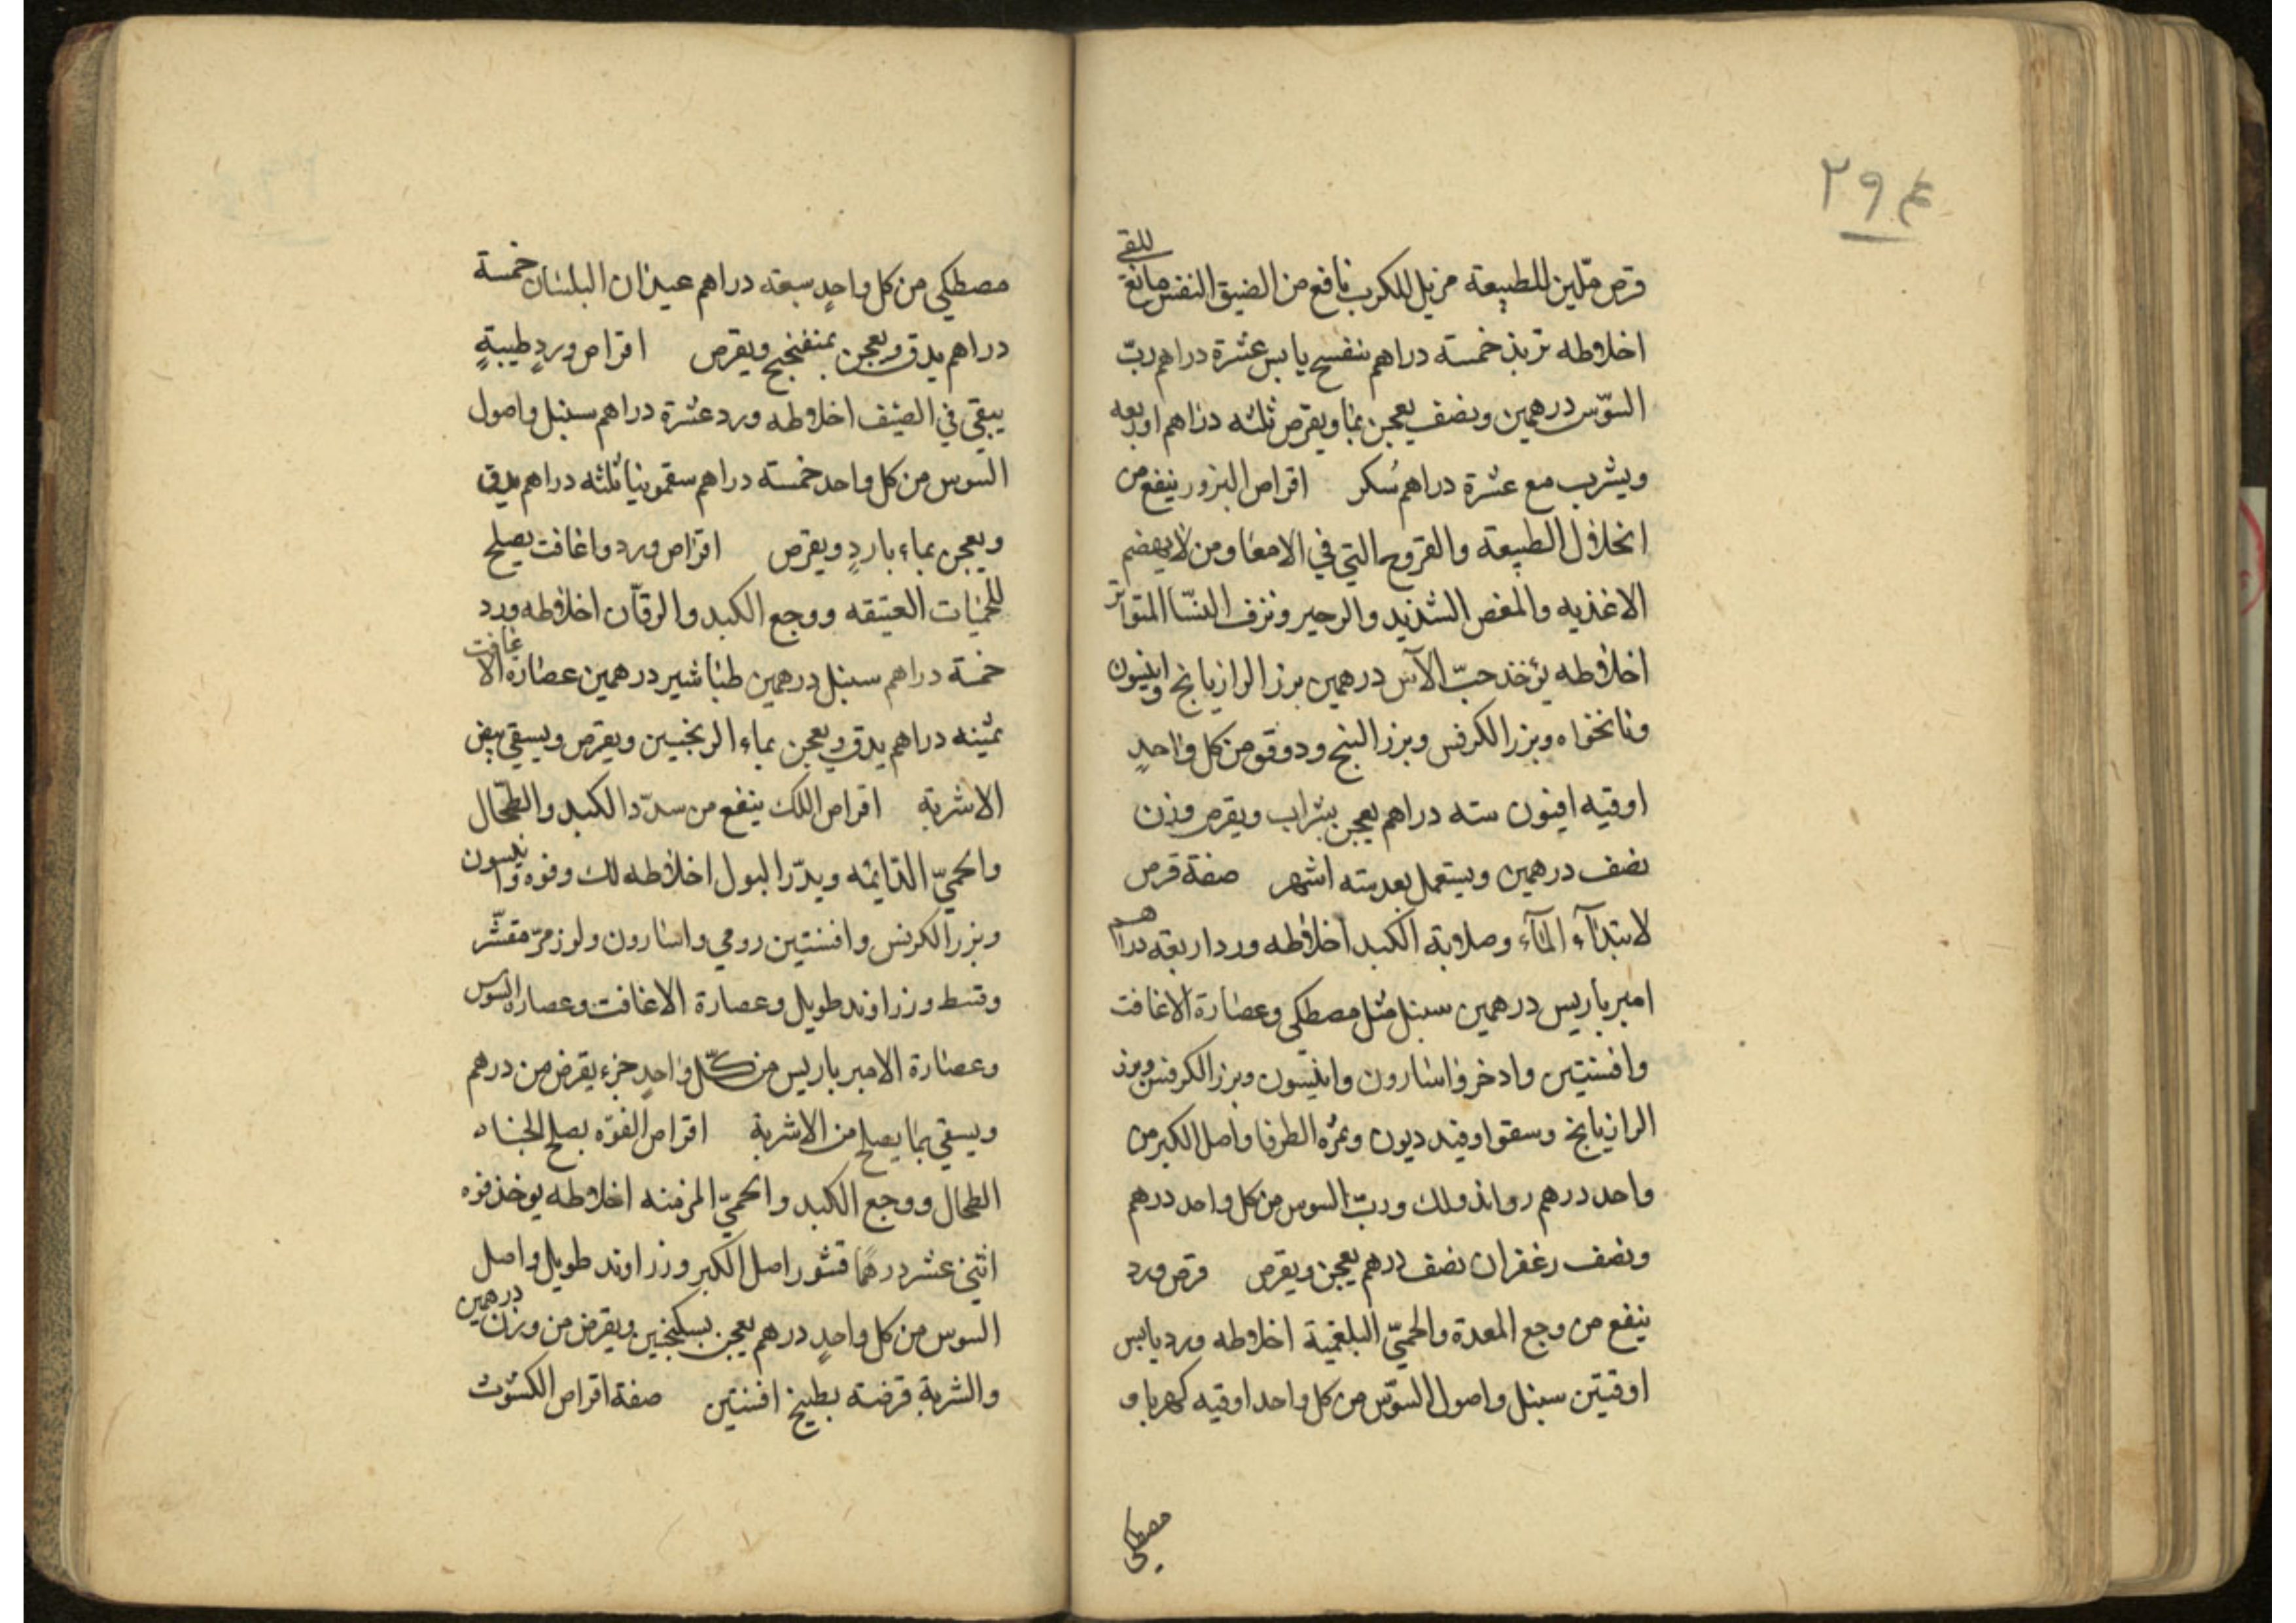 ٢٩٤
قرص مليّن للطبيعة مزيل للكرب نافع من الضيق النفس مانعة للقي
اخلاطه تربذ خمسته دراهم بنفسج يابس عشرة دراهم ربّ
السوّس درهمين ونصف يعجن بما ويقرص ثلثه دراهم اوبعه
ويشرب مع عشرة دراهم سُكر اقراص البزور ينفع من
انحلال الطبيعة والقروح التي في الامعا ومن لا يهضم
الاغذيه والمغص الشديد والزحير ونزف النسّا المتواتر
اخلاطه يؤخذ حبّ الآس درهمين بزر الرازيانج وانيسون
ونانخواه وبزر الكرفس وبزر البنج ودوقو من كل واحدٍ
اوقيه افيون سته دراهم يعجن بشراب ويقرص وزن
نصف درهمين ويستعمل بعد سته اشهر صفة قرص
لابتدآء المآء وصلابة الكبد اخلاطه ورد اربعه دراهم
امبرباريس درهمين سنبل مثل مصطكي وعصارة الاغافت
وافسنتين وادخر واسارون وانيسون وبزر الكرفس وبزر
الرازيانج وسقولوفندريون وثمره الطرفا واصل الكبر من
واحد درهم رواند ولك وربّ السوس من كل واحد درهم
ونصف زعفران نصف درهم يعجن ويقرص قرص ورد
ينفع من وجع المعدة والحميّ البلغمية اخلاطه ورد يابس
اوقيتن سنبل واصول السوّس من كل واحد اوقيه كهربا و
مصطكي
مصطكي من كل واحدٍ سبعه دراهم عيدان البلسان خمسة
دراهم يدق ويعجن بمنفنجج ويقرص اقراص وردٍ طيبةٍ
يبقي في الصيف اخلاطه ورد عشرة دراهم سنبل واصول
السوس من كل واحد خمسته دراهم سقمونيا ثلثه دراهم يدق
ويعجن بماء باردٍ ويقرص اقراص ورد واغافت يصلح
للحميات العتيقه ووجع الكبد والرقآن اخلاطه ورد
خمسة دراهم سنبل درهمين طباشير درهمين عصارة الاغافت
ثمينه دراهم يدق ويعجن بماء الرنجبين ويقرص ويسقي ببعض
الاشربة اقراص اللك ينفع من سدّد الكبد والطّحال
والحميّ الدائمه ويدّر البول اخلاطه لك وفوه وانيسون
وبزر الكرفس وافسنتين رومي واسارون ولوز مرّ مقشّر
وقسط وزراوند طويل وعصارة الاغافت وعصاره السوس
وعصارة الامبرباريس من كلّ واحدٍ جزء يقرض من درهم
ويسقي بما يصلح من الاشربة اقراص الفوّه يصلح الجساد
الطحال ووجع الكبد والحميّ المزمنه اخلاطه يوخذ فوه
اثني عشر درهمًا قشور اصل الكبر وزراوند طويل واصل
السوس من كل واحدٍ درهم يعجن بسكنجبين ويقرض من وزن درهمين
والشربة قرضته بطبيخ افسنتين صفة اقراص الكشوث